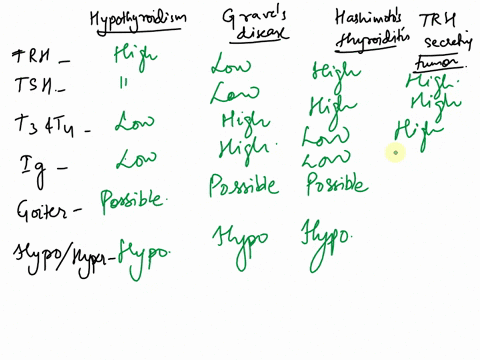 Hypothyroidism Grave's disease Hashimoto's thyroiditis TRH secreting tumor
TRH - High Low High High.
TSH - " Low High High
T3 & T4 - Low High Low High
Ig - Low High. Low
Goiter - Possible. Possible Possible
Hypo/Hyper - Hypo. Hypo Hypo.